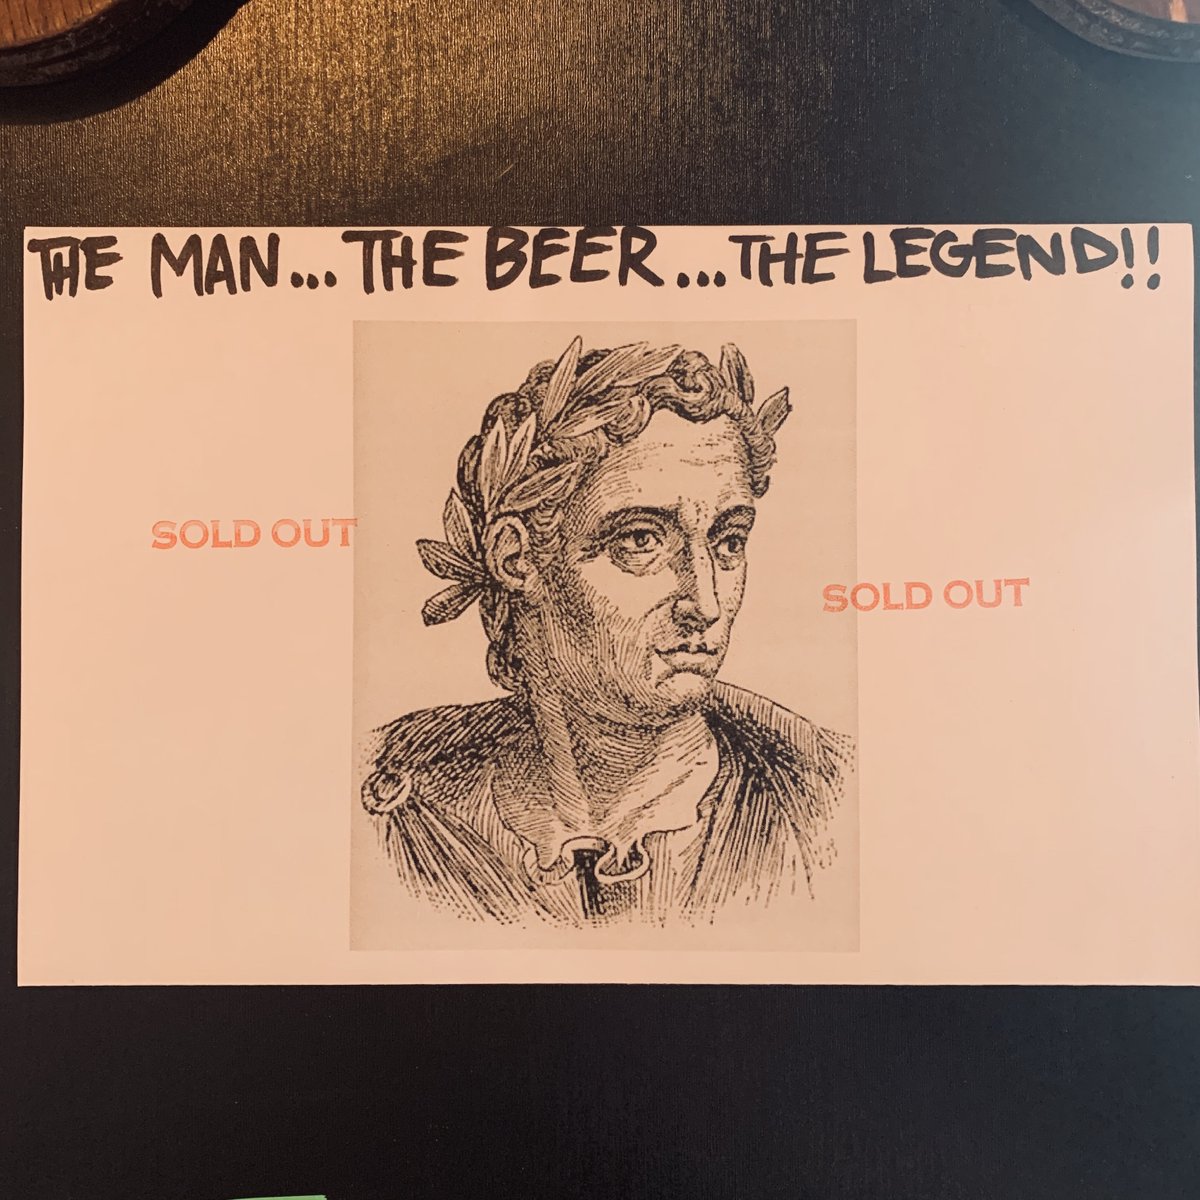 THE MAN... THE BEER... THE LEGEND!!
SOLD OUT
SOLD OUT